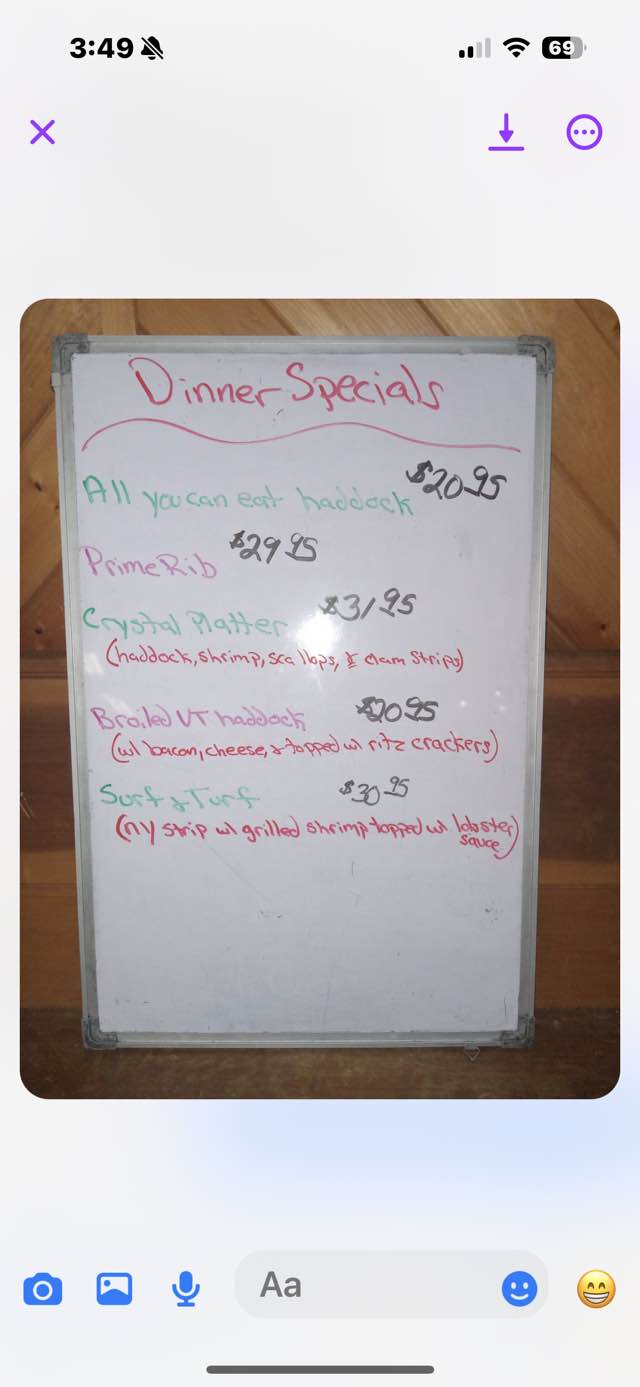 3:49
69
Dinner Specials
All you can eat haddock $20.95
Prime Rib $29 95
Crystal Platter $31 95
(haddock, shrimp, scallops, & clam strips)
Broiled VT haddock $20 95
(w/ bacon, cheese, & topped w/ ritz crackers)
Surf & Turf $30 95
(ny strip w/ grilled shrimp topped w/ lobster
sauce)
Aa